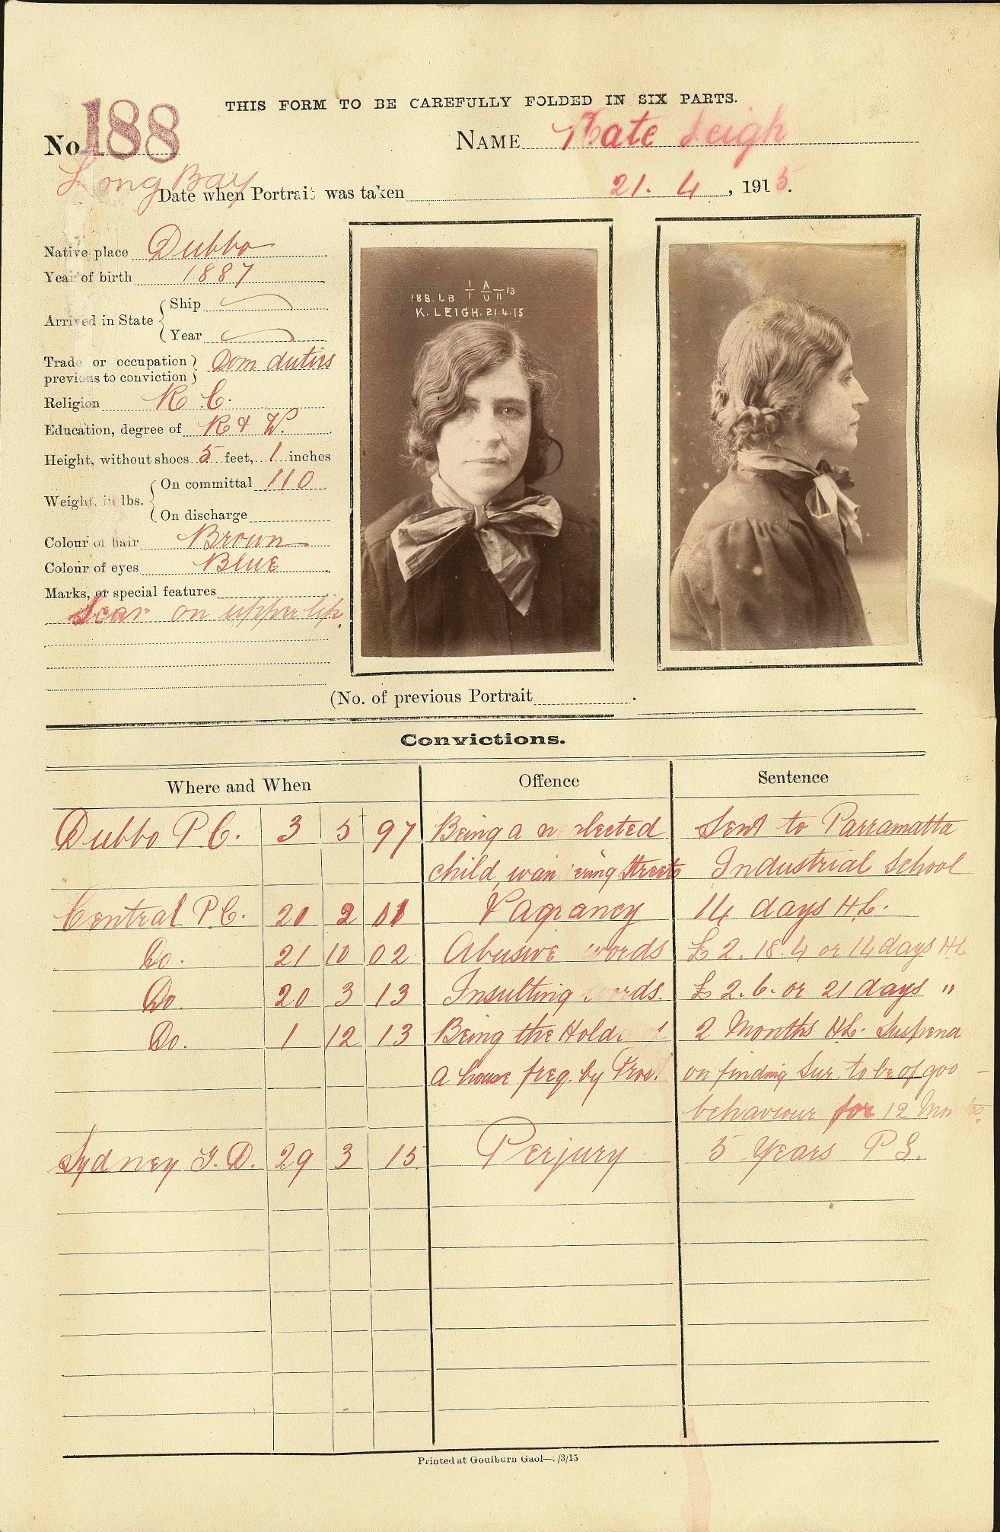 THIS FORM TO BE CAREFULLY FOLDED IN SIX PARTS.
No. 188
NAME Kate Leigh
Long Bay
Date when Portrait was taken 21. 4, 1915.
Native place Dubbo
Year of birth 1887
Arrived in State { Ship
Year
Trade or occupation } Dom duties
previous to conviction }
Religion R C.
Education, degree of R & W.
Height, without shoes 5 feet, 1 inches
Weight, in lbs. { On committal 110
On discharge
Colour of hair Brown
Colour of eyes Blue
Marks, or special features
Scar on upper lip.
188. LB
K. LEIGH. 21.4.15
(No. of previous Portrait .
Convictions.
Where and When Offence Sentence
Dubbo P.C. 3 5 97 Being a neglected Sent to Parramatta
child wandering streets Industrial School
Central P.C. 20 2 01 Vagrancy 14 days H.L.
Do. 21 10 02 Abusive words £2.18.4 or 14 days HL
Do 20 3 13 Insulting words. £2.6. or 21 days "
Do. 1 12 13 Being the Hold. 2 Months HL. Suspend
a house freq. by Pros. on finding Sur. to be of goo
behaviour for 12 Mon
Sydney G.D. 29 3 15 Perjury 5 Years P.S.
Printed at Goulburn Gaol— /3/15